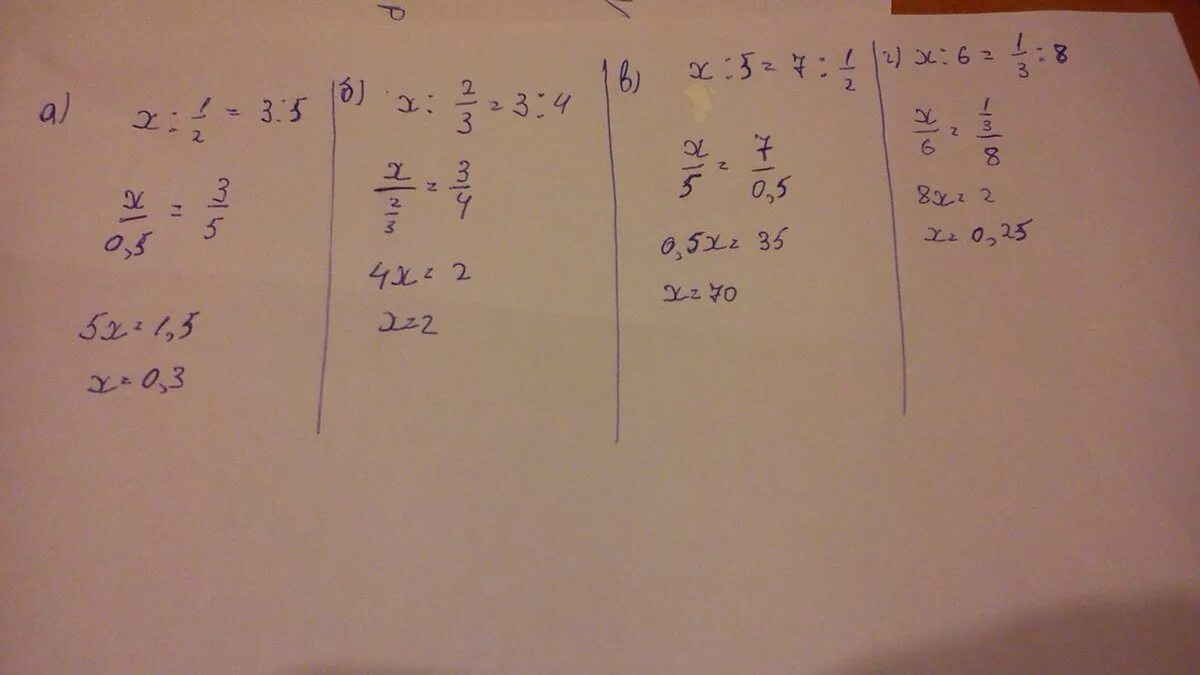 а) x : 1/2 = 3 : 5
x/0,5 = 3/5
5x = 1,5
x = 0,3
б) x : 2/3 = 3 : 4
x/(2/3) = 3/4
4x = 2
x = 2
в) x : 5 = 7 : 1/2
x/5 = 7/0,5
0,5x = 35
x = 70
г) x : 6 = 1/3 : 8
x/6 = (1/3)/8
8x = 2
x = 0,25